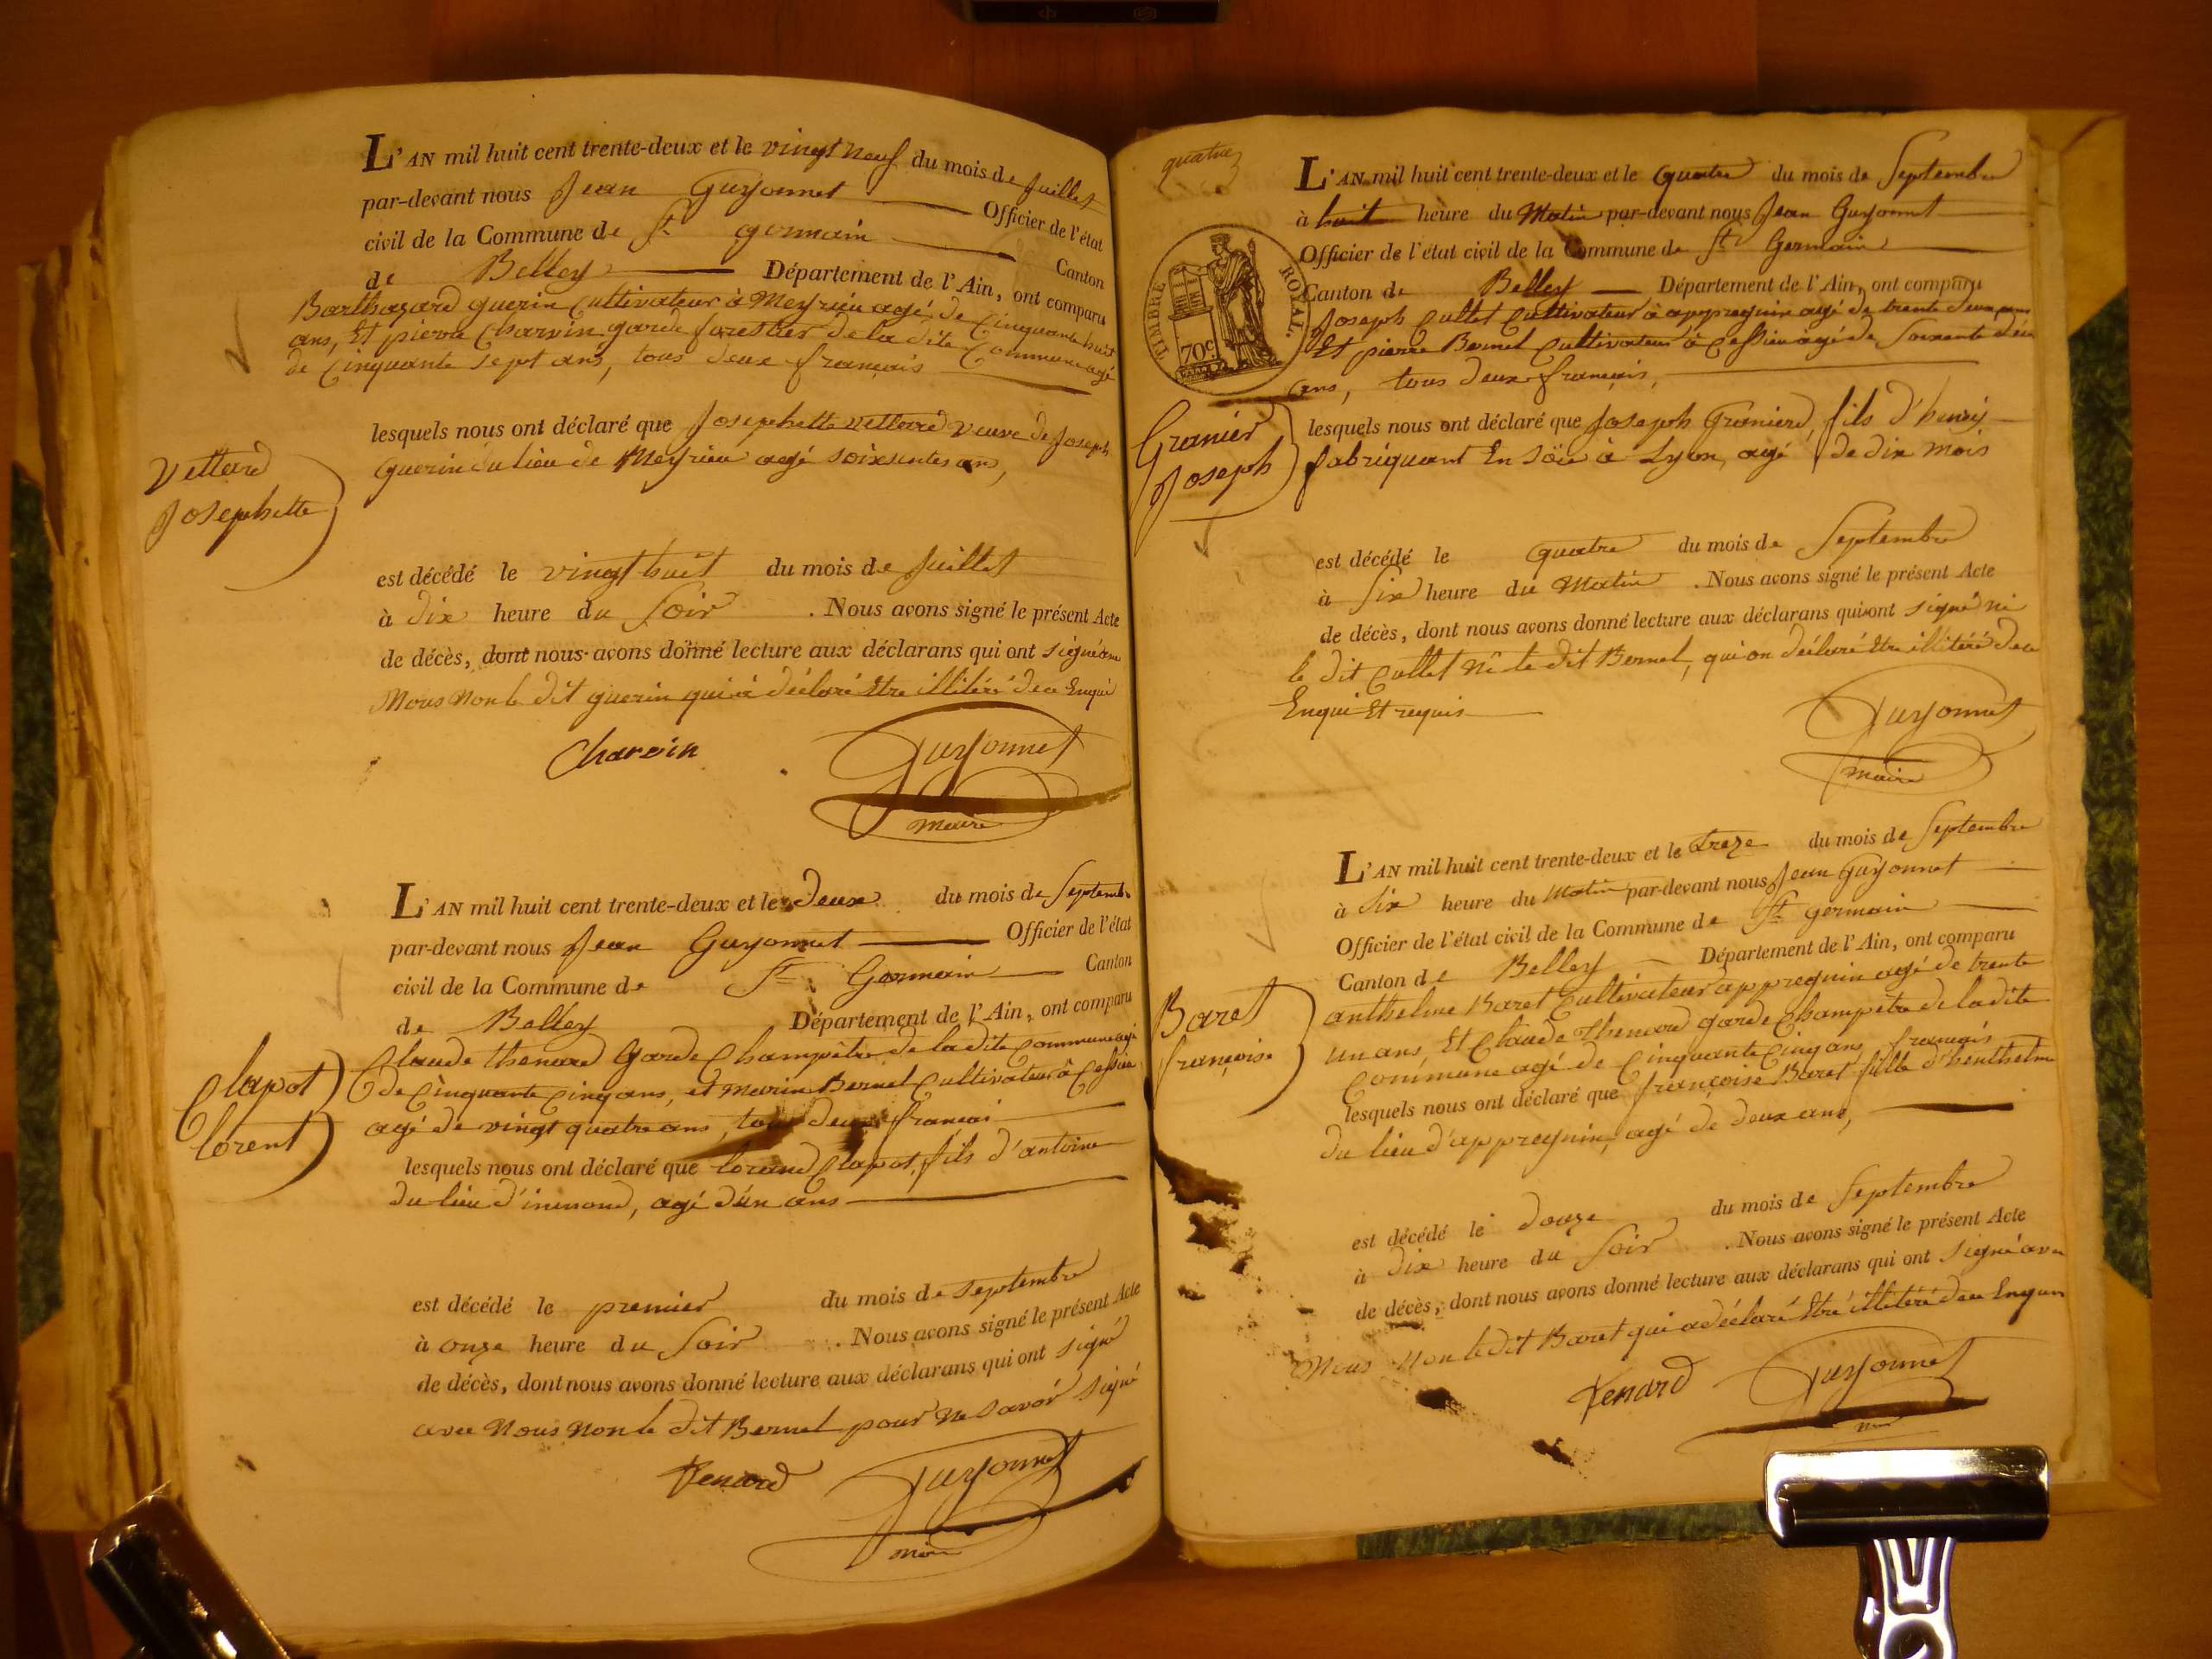 L'AN mil huit cent trente-deux et le vingt neuf du mois de Juillet
par-devant nous Jean Guyonnet Officier de l'état
civil de la Commune de St germain Canton
de Belley Département de l'Ain, ont comparu
Barthazard guerin Cultivateur à Meyrieu agé de Cinquante huit
ans, Et pierre Charvin garde forestier de la dite Commune agé
de Cinquante sept ans, tous deux français
Vettard
Josephette
lesquels nous ont déclaré que Josephette Vettard veuve de Joseph
guerin du lieu de Meyrieu agé soixsentes ans,
est décédé le vingt huit du mois de Juillet
à dix heure du Soir . Nous avons signé le présent Acte
de décès, dont nous avons donné lecture aux déclarans qui ont signé
Nous Non le dit guerin qui à déclaré Etre illitéré de ce Enquis
Charvin Guyonnet
maire
L'AN mil huit cent trente-deux et le Deux du mois de Septemb
par-devant nous Jean Guyonnet Officier de l'état
civil de la Commune de St Germain Canton
de Belley Département de l'Ain, ont comparu
Claude thenard Garde Champêtre de la dite Commune agé
de Cinquante Cinq ans, et Marin Bernel Cultivateur à Cessieu
agé de vingt quatre ans, tous deux françai
Clapot
lorent
lesquels nous ont déclaré que lorand Clapot, fils d'antoine
du lieu d'inimond, agé d'un ans
est décédé le premier du mois de septembre
à onze heure du Soir . Nous avons signé le présent Acte
de décès, dont nous avons donné lecture aux déclarans qui ont signé
avec Nous Non le dit Bernel pour ne savoir signé
tenard Guyonnet
maire
quatre
TIMBRE ROYAL
70c
L'AN mil huit cent trente-deux et le quatre du mois de Septembre
à huit heure du Matin par-devant nous Jean Guyonnet
Officier de l'état civil de la Commune de St Germain
Canton de Belley Département de l'Ain, ont comparu
Joseph Cullet Cultivateur à appregnin agé de trente deux ans
Et pierre Bernel Cultivateur à Cessieu agé de Soixente dix
ans, tous deux français,
Granier
Joseph
lesquels nous ont déclaré que Joseph Granierd, fils d'henry
fabriquant En Soïe à Lyon, agé de dix mois
est décédé le quatre du mois de Septembre
à Six heure du Matin . Nous avons signé le présent Acte
de décès, dont nous avons donné lecture aux déclarans qui ont signé ni
le dit Cullet Ni le dit Bernel, qui on déclaré Etre illitéré de ce
Enqui Et requis
Guyonnet
maire
L'AN mil huit cent trente-deux et le treze du mois de Septembre
à Six heure du Matin par-devant nous Jean Guyonnet
Officier de l'état civil de la Commune de St germain
Canton de Belley Département de l'Ain, ont comparu
anthelme Baret Cultivateur appregnin agé de trente
un ans, Et Claude thenard garde Champêtre de la dite
Commune agé de Cinquante Cinq ans, français
Baret
françoise
lesquels nous ont déclaré que françoise Baret fille d'henthelme
du lieu d'appregnin, agé de deux ans,
est décédé le douze du mois de Septembre
à dix heure du Soir . Nous avons signé le présent Acte
de décès, dont nous avons donné lecture aux déclarans qui ont signé avec
Nous Non le dit Baret qui a déclaré Etre illitéré de ce Enquis
tenard Guyonnet